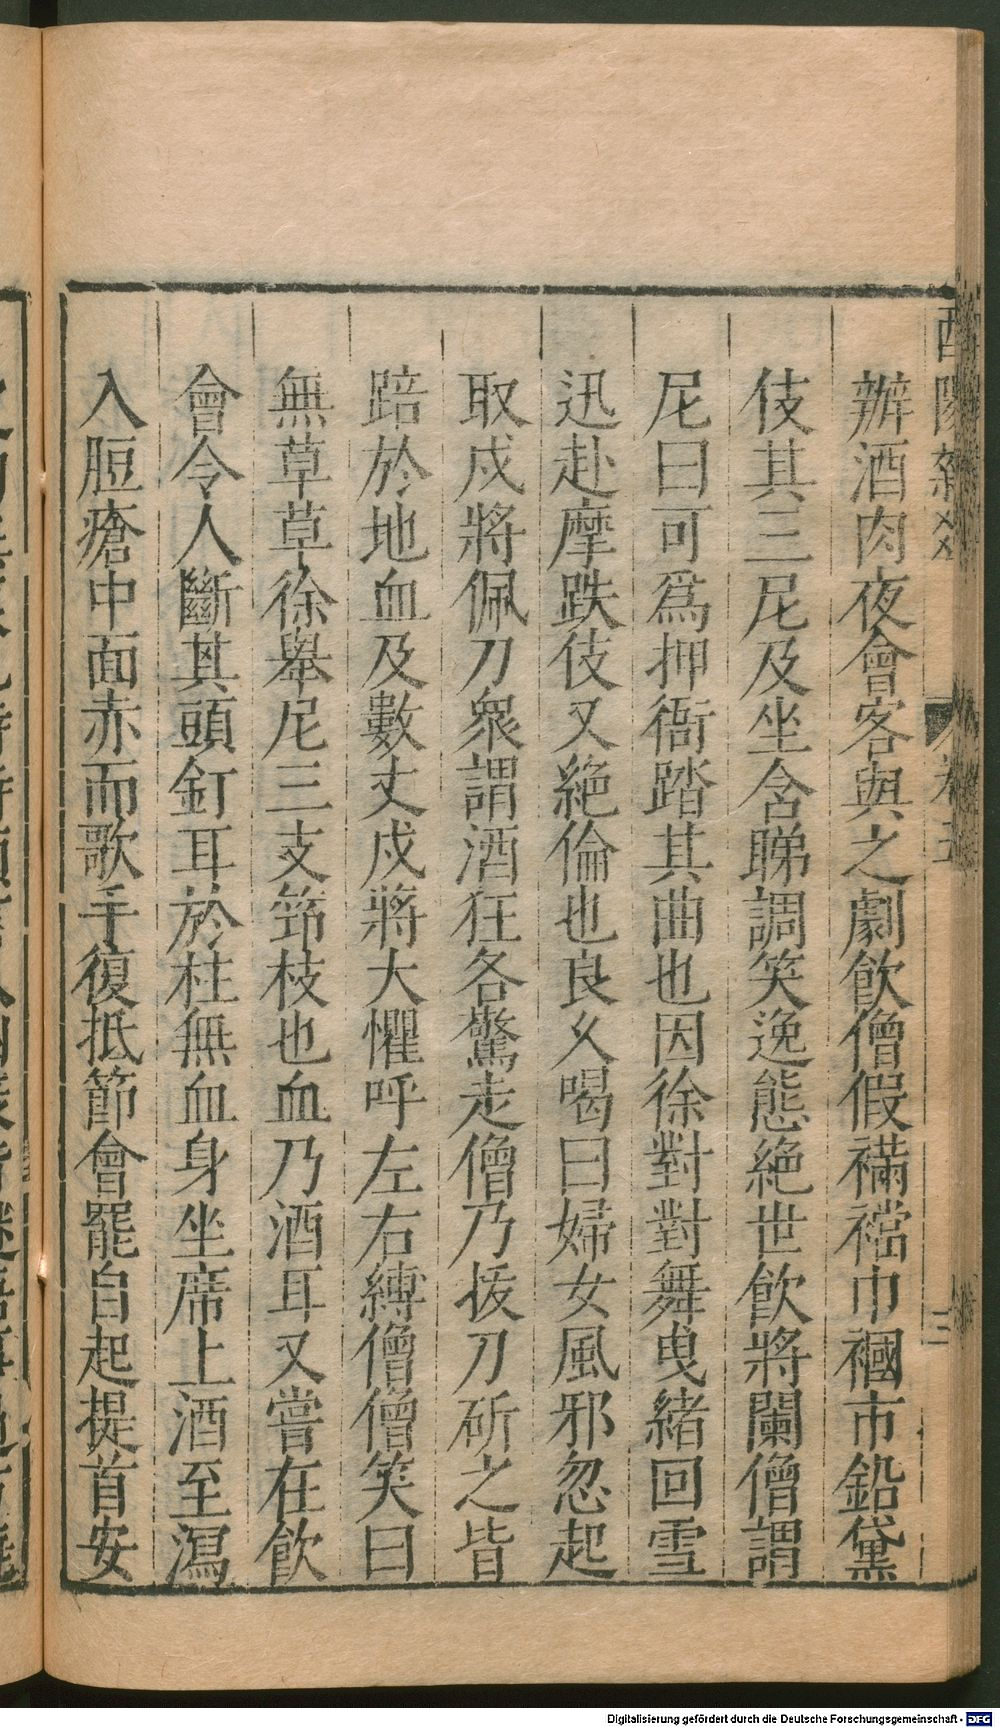 酉陽雜
卷五
三
辦酒肉夜會客與之劇飲僧假𧛾襠巾幗市鉛黛
伎其三尼及坐含睇調笑逸態絕世飲將闌僧謂
尼曰可爲押衙踏其曲也因徐對對舞曳緒回雪
迅赴摩跌伎又絕倫也良久喝曰婦女風邪忽起
取戍將佩刀衆謂酒狂各驚走僧乃拔刀斫之皆
踣於地血及數丈戍將大懼呼左右縛僧僧笑曰
無草草徐舉尼三支筇枝也血乃酒耳又嘗在飲
會令人斷其頭釘耳於柱無血身坐席上酒至瀉
入脰瘡中面赤而歌手復抵節會罷自起提首安
Digitalisierung gefördert durch die Deutsche Forschungsgemeinschaft - DFG